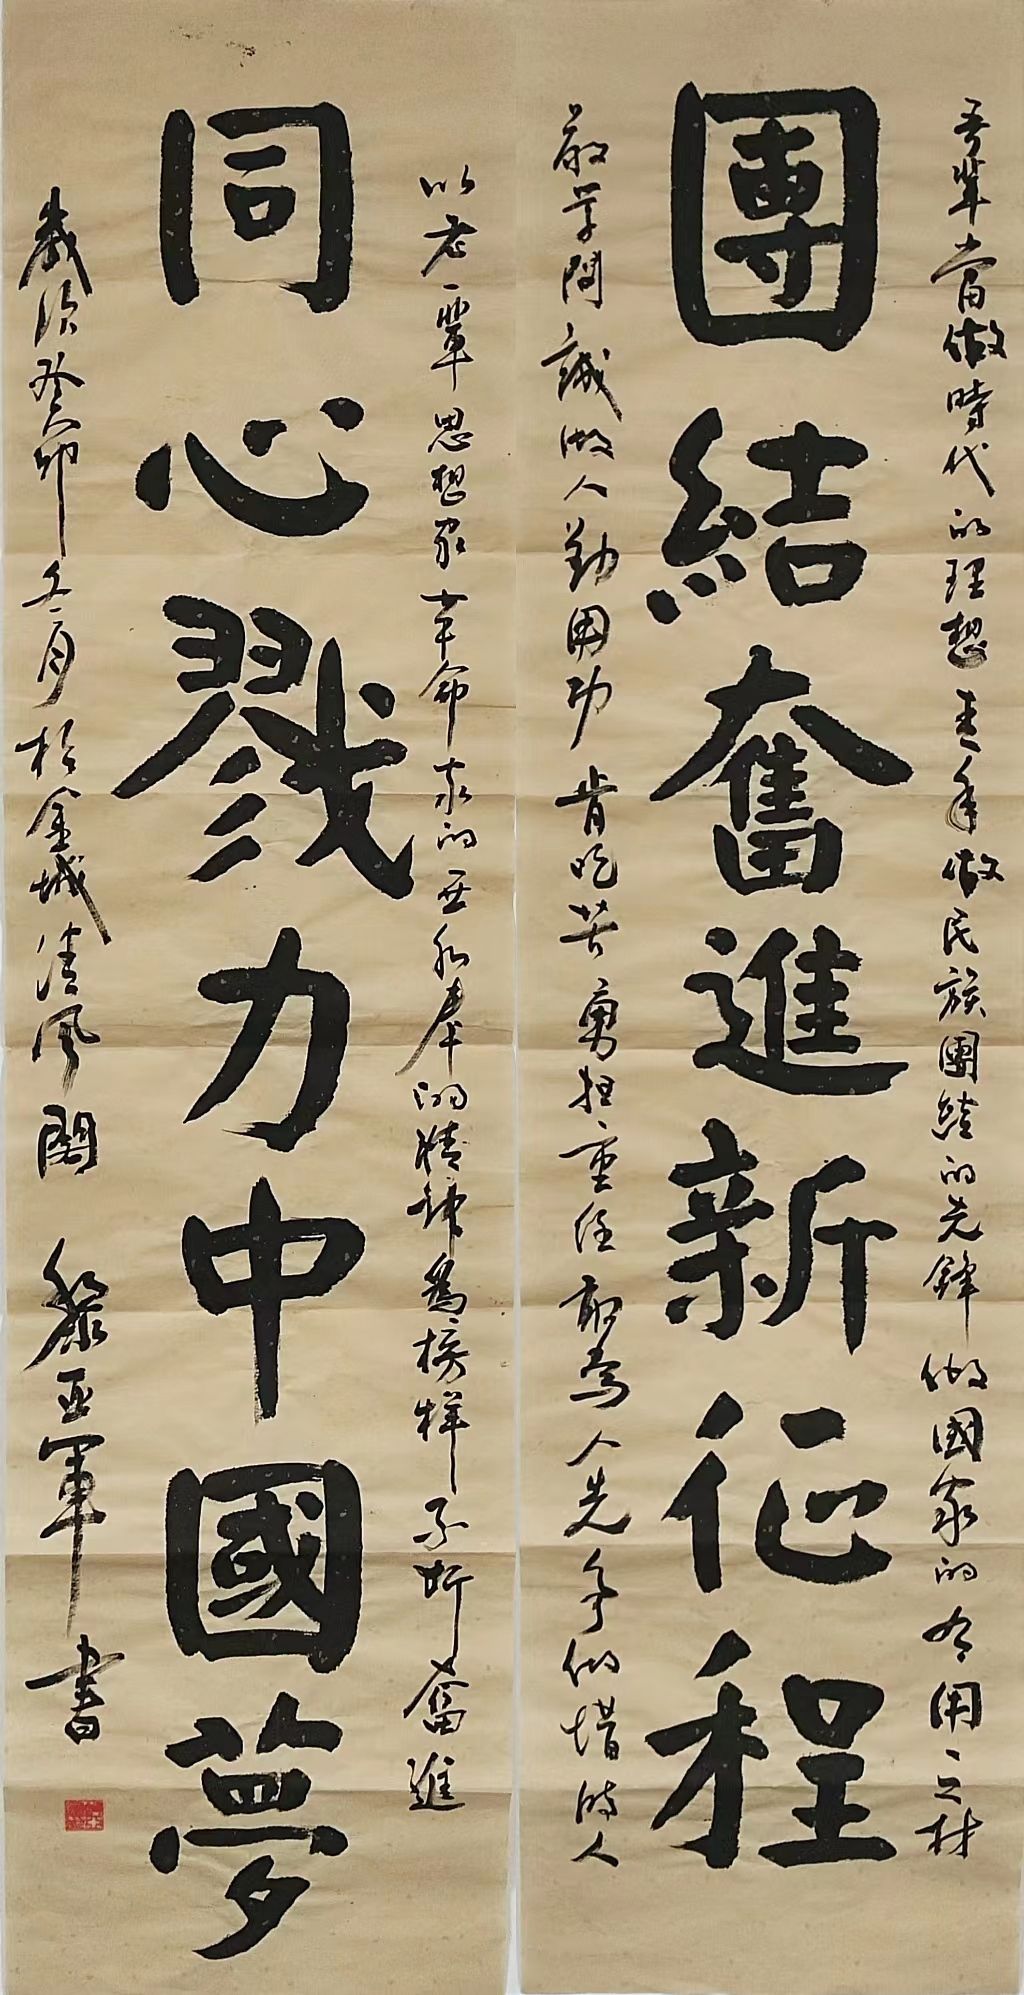 吾輩當做時代的理想青年做民族團結的先鋒做國家的有用之材
團結奮進新征程
嚴學問誠做人勤用功肯吃苦勇担重任敢為人先争做惜時人
以老一輩思想家革命家的無私奉的精神為榜樣不斷奮進
同心戮力中國夢
歲次癸卯冬月於金城清風閣 黎亚軍書